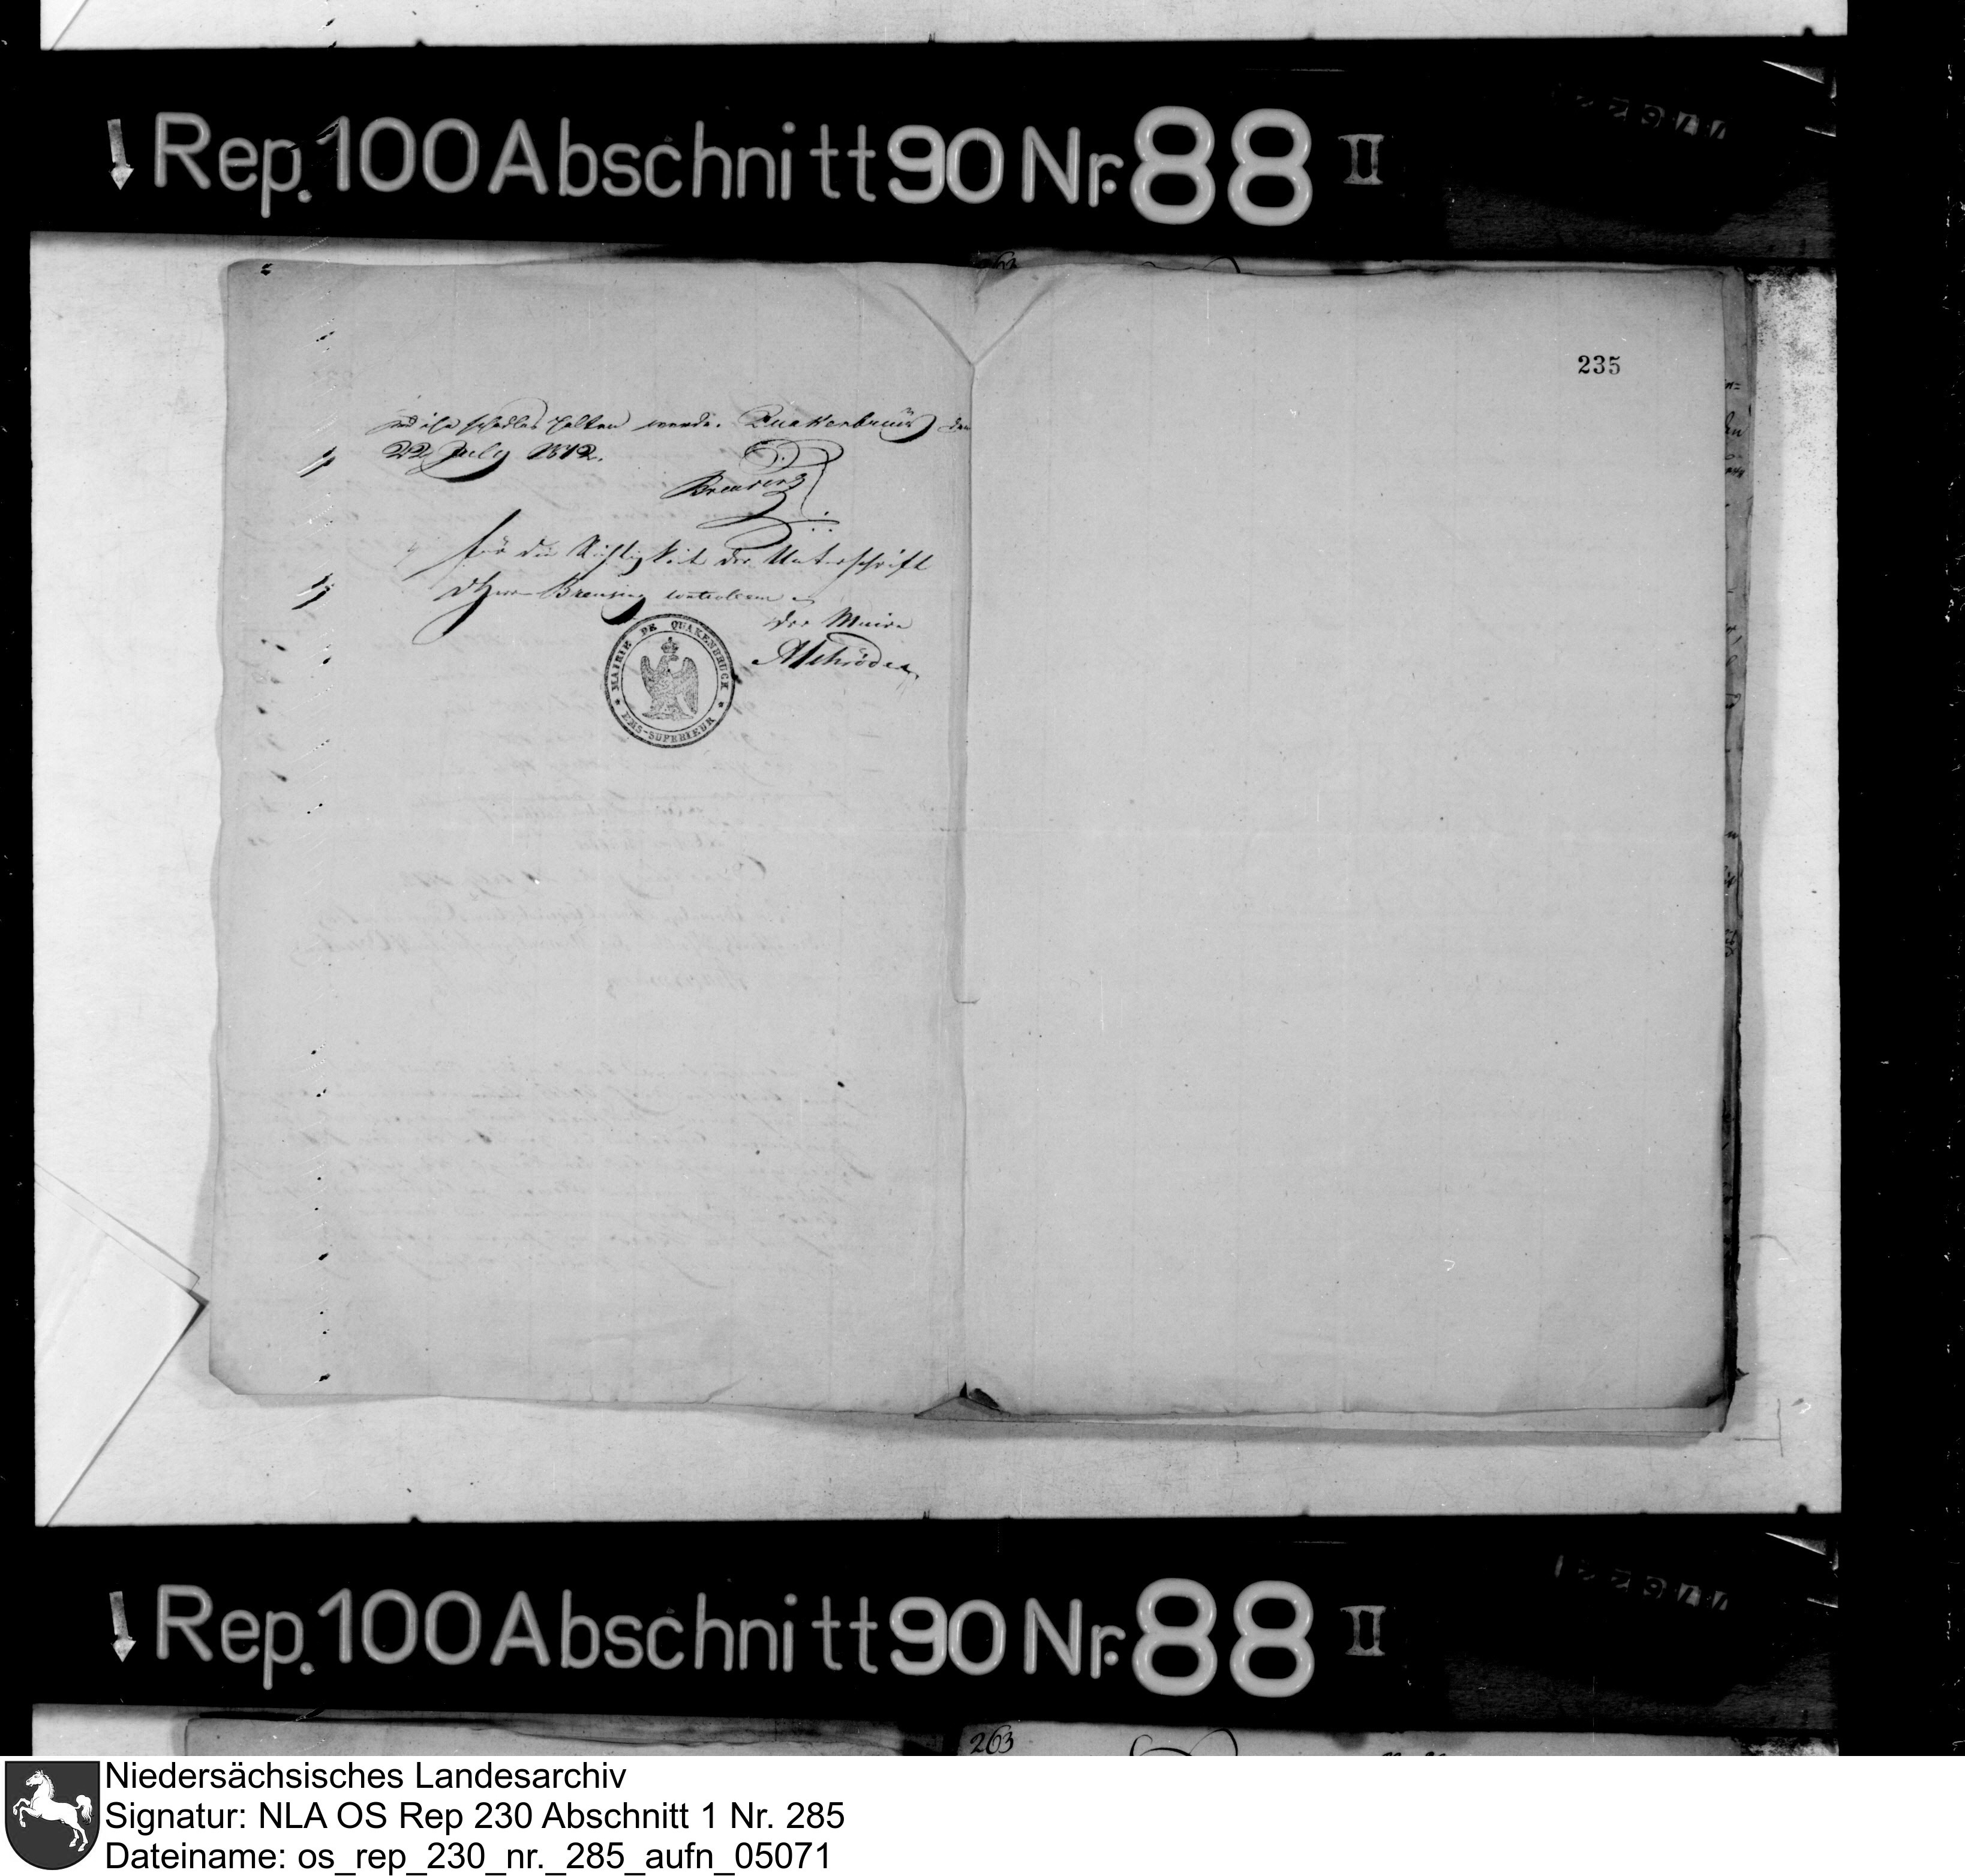 Rep. 100 Abschnitt 90 Nr. 88 II
235
und ihn schadlos halten werde. Quakenbrück den
22 July 1812.
Breusing
für die Richtigkeit der Unterschrift
Breusing
der Maire
ASchröder
MAIRIE DE QUAKENBRUCK
EMS-SUPERIEUR
Rep. 100 Abschnitt 90 Nr. 88 II
263
Niedersächsisches Landesarchiv
Signatur: NLA OS Rep 230 Abschnitt 1 Nr. 285
Dateiname: os_rep_230_nr._285_aufn_05071